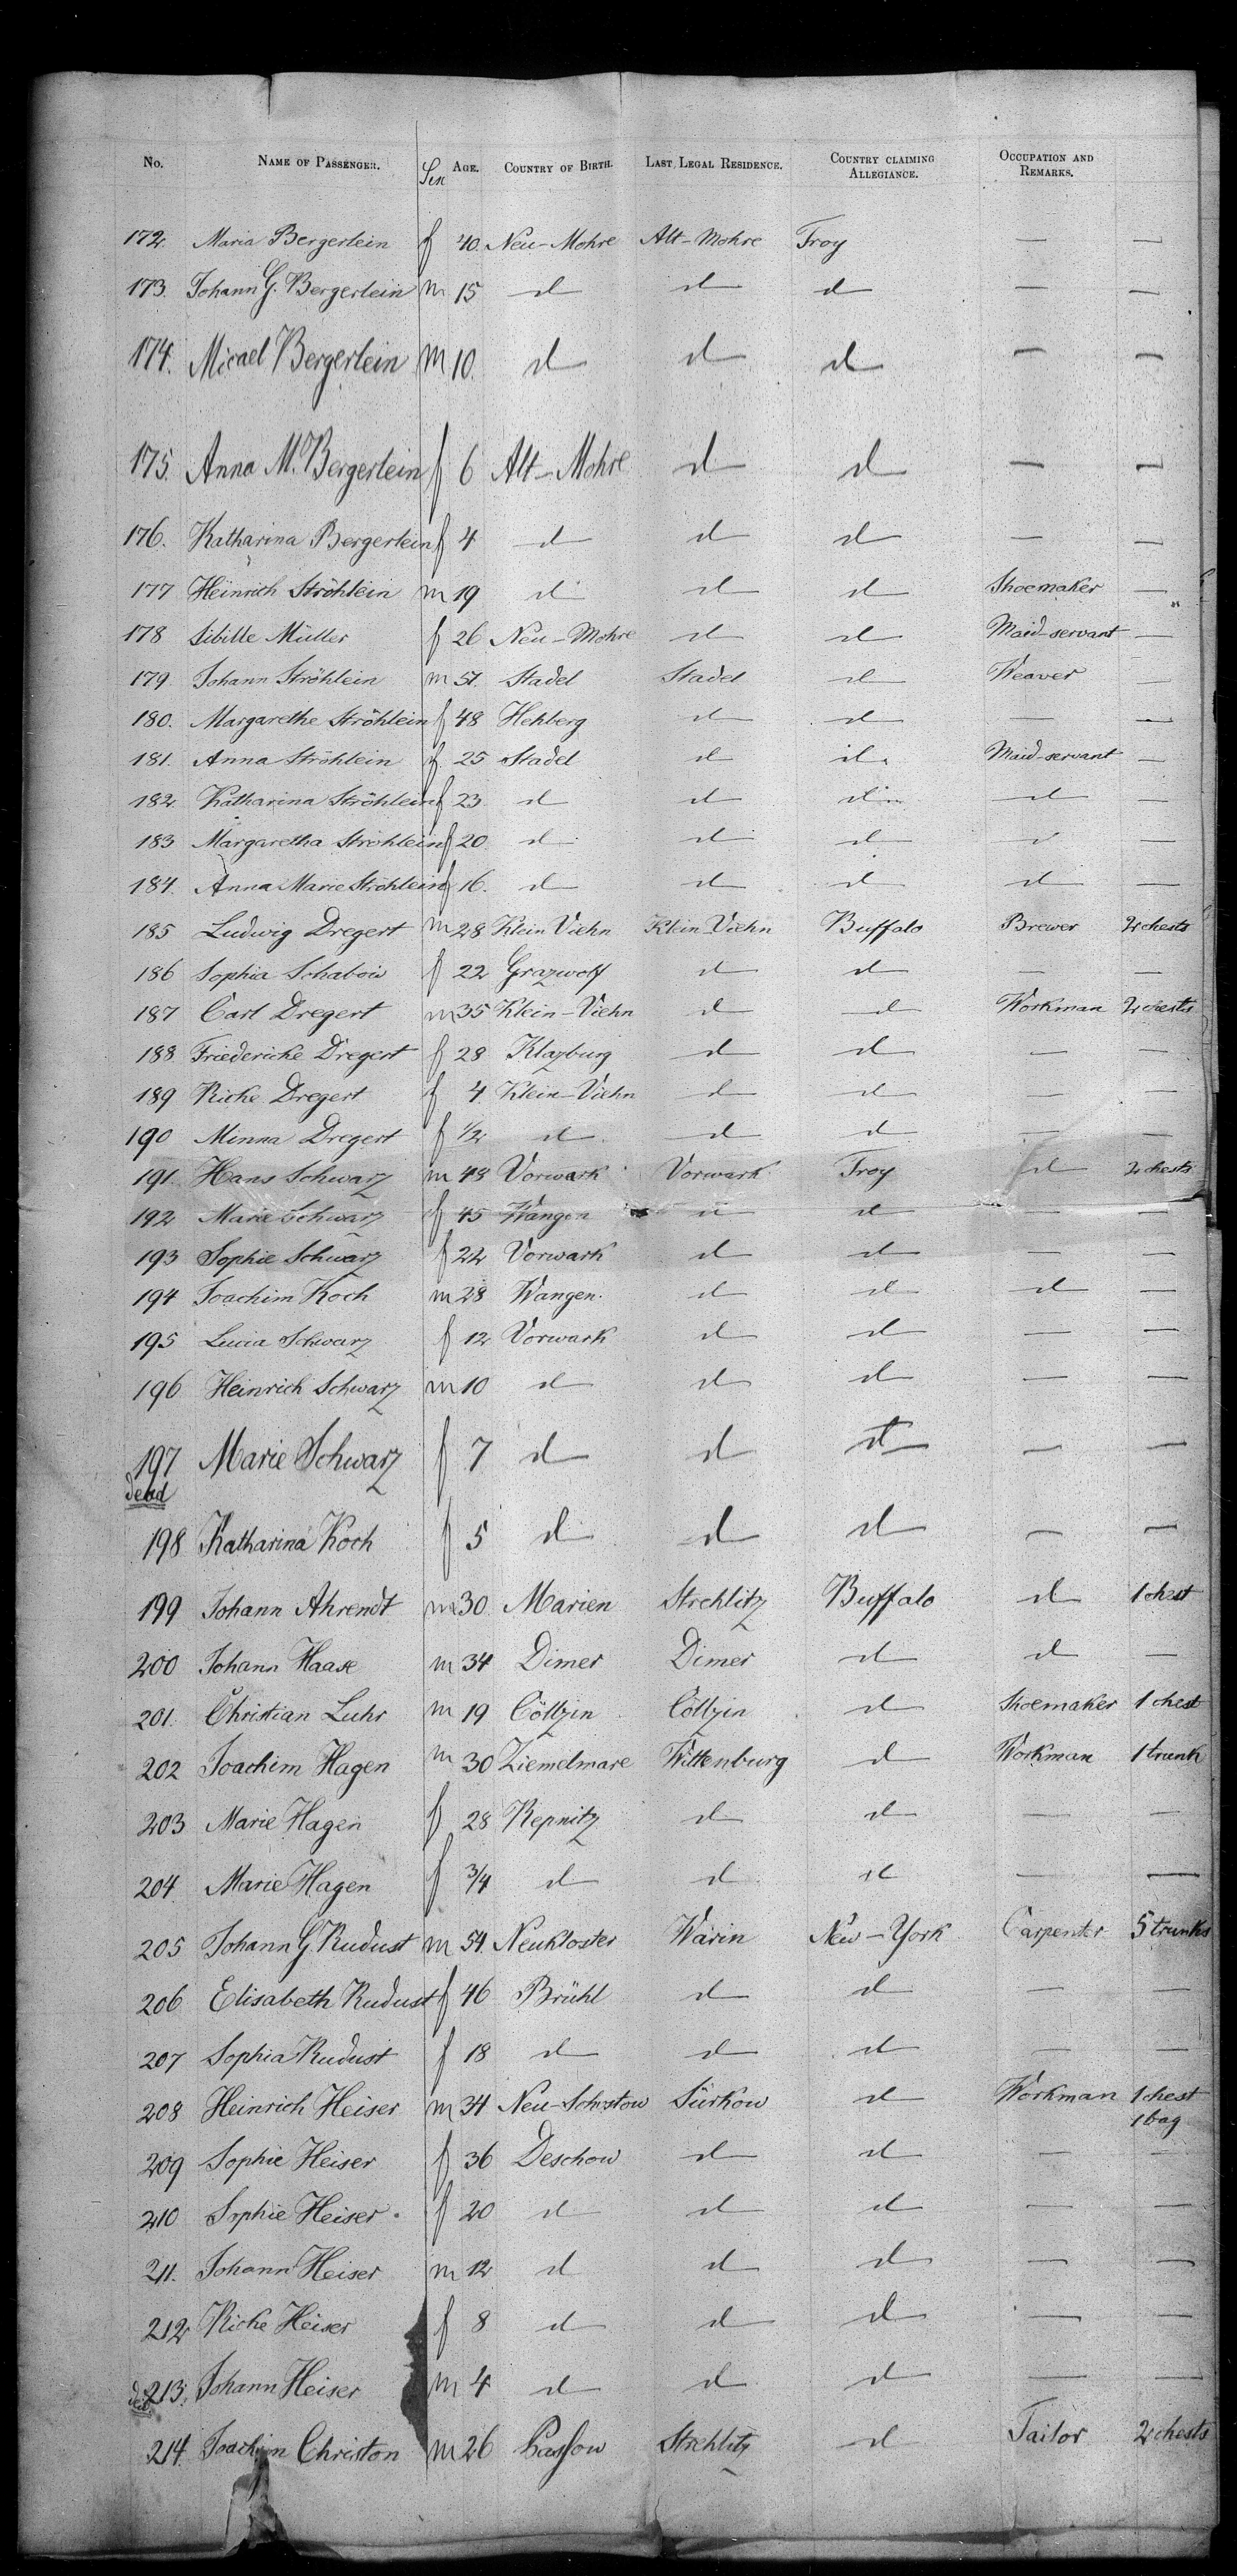 No. NAME OF PASSENGER. Sex AGE. COUNTRY OF BIRTH. LAST LEGAL RESIDENCE. COUNTRY CLAIMING ALLEGIANCE. OCCUPATION AND REMARKS.
172. Maria Bergerlein f 40. Neu-Mohre Alt-Mohre Troy — —
173. Johann G. Bergerlein m 15 d d d — —
174. Micael Bergerlein m 10. d d d — —
175. Anna M. Bergerlein f 6 Alt-Mohre d d — —
176. Katharina Bergerlein f 4 d d d — —
177 Heinrich Ströhlein m 19 d d d Shoemaker —
178 Sibille Müller f 26 Neu-Mohre d d Maid-servant —
179. Johann Ströhlein m 51. Stadel Stadel d Weaver —
180. Margarethe Ströhlein f 48 Hehberg d d — —
181. Anna Ströhlein f. 25 Stadel d d Maid-servant —
182 Katharina Ströhlein f 23 d d d d —
183 Margaretha Ströhlein f 20. d d d d —
184. Anna Marie Ströhlein f 16. d d d d —
185 Ludwig Dregert m 28 Klein Viehn Klein Viehn Buffalo Brewer 2 chests
186 Sophia Schabow f 22 Grazwolf d d — —
187 Carl Dregert m 35 Klein-Viehn d d Workman 2 chests
188 Friedericke Dregert f 28 Klazburg d d — —
189 Ricke Dregert f 4 Klein-Viehn d d — —
190 Minna Dregert f 1/2 d d d — —
191. Hans Schwarz m 48 Vorwark Vorwark Troy d 2 chests
192 Marie Schwarz f 45 Wangen d d — —
193 Sophie Schwarz f 22 Vorwark d d — —
194 Joachim Koch m 28 Wangen. d d d —
195 Lucia Schwarz f 12 Vorwark d d — —
196 Heinrich Schwarz m 10 d d d — —
197 Marie Schwarz f 7 d d d — —
dead
198 Katharina Koch f 5 d d d — —
199 Johann Ahrendt m 30 Marien Strehlitz Buffalo d 1 chest
200 Johann Haase m 34 Dimer Dimer d d —
201. Christian Luhr m 19 Cöltzin Cöltzin d Shoemaker 1 chest
202 Joachim Hagen m 30 Ziemelmare Wittenburg d Workman 1 trunk
203 Marie Hagen f 28 Repnitz d d — —
204 Marie Hagen f 3/4 d d d — —
205 Johann G. Rudust m 54 Neukloster Warin New-York Carpenter 5 trunks
206 Elisabeth Rudust f 46 Brühl d d — —
207 Sophia Rudust f 18 d d d — —
208 Heinrich Heiser m 34 Neu-Schostow Sürkow d Workman 1 chest
1 bag
209 Sophie Heiser f 36 Deschow d d — —
210 Sophie Heiser f 20 d d d — —
211. Johann Heiser m 12 d d d — —
212 Ricke Heiser f 8 d d d — —
213. Johann Heiser m 4 d d d — —
214. Joachim Christon m 26 Strehlitz d Tailor 2 chests